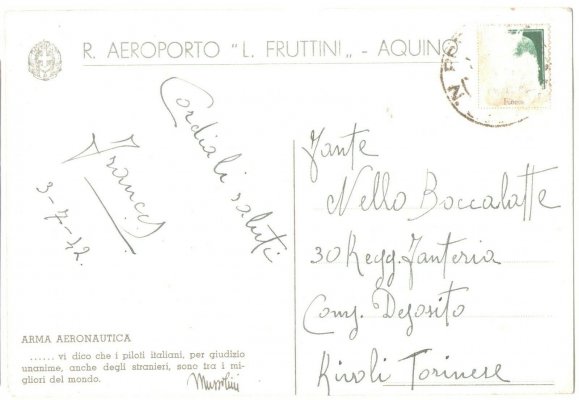 R. AEROPORTO "L. FRUTTINI" - AQUINO
Cordiali saluti
Franco
3-7-42.
Fante
Nello Boccalatte
30 Regg. Fanteria
Comp. Deposito
Rivoli Torinese
ARMA AERONAUTICA
...... vi dico che i piloti italiani, per giudizio
unanime, anche degli stranieri, sono tra i mi-
gliori del mondo.
Mussolini